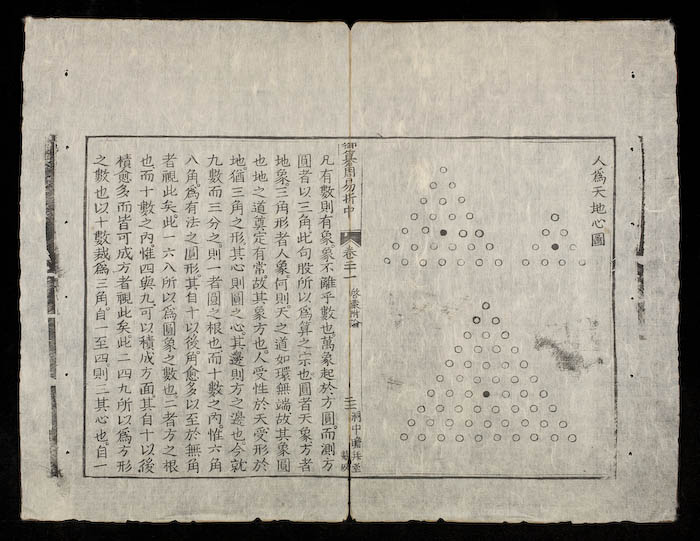 人爲天地心圖
御纂周易折中
卷二十一
啓蒙附論
凡有數則有象象不離乎數也萬象起於方圓而測方
圓者以三角此句股所以爲算之宗也圓者天象方者
地象三角形者人象何則天之道如環無端故其象圓
也地之道奠定有常故其象方也人受性於天受形於
地猶三角之形其心則圓之心其邊則方之邊也今就
九數而三分之則一者圓之根也而十數之內惟六角
八角爲有法之圓形其自十以後角愈多以至於無角
者視此矣此一六八所以爲圓象之數也二者方之根
也而十數之內惟四與九可以積成方面其自十以後
積愈多而皆可成方者視此矣此二四九所以爲方形
之數也以十數裁爲三角自一至四則三其心也自一